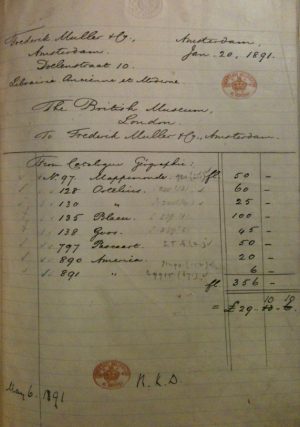 Frederik Muller & Co, Amsterdam,
Amsterdam. Jan. 20, 1891.
Doelenstraat 10.
Librairie Ancienne et Moderne
The British Museum,
London.
To Frederik Muller & Co., Amsterdam.
From Catalogue Géographie:
No 97 Mappemonde fl 50 -
" 128 Ortelius 60 -
" 130 " 25 -
" 135 Blaeu 100 -
" 138 Goos 45 -
" 797 Pascaart 50 -
" 890 America 20 -
" 891 " 6 -
fl 356 -
= £29.
May 6. 1891